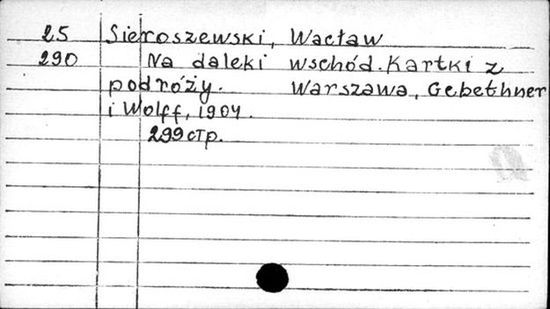 25 Sieroszewski, Wacław
290 Na daleki wschód. Kartki z
podróży. Warszawa, Gebethner
i Wolff, 1904.
299 стр.